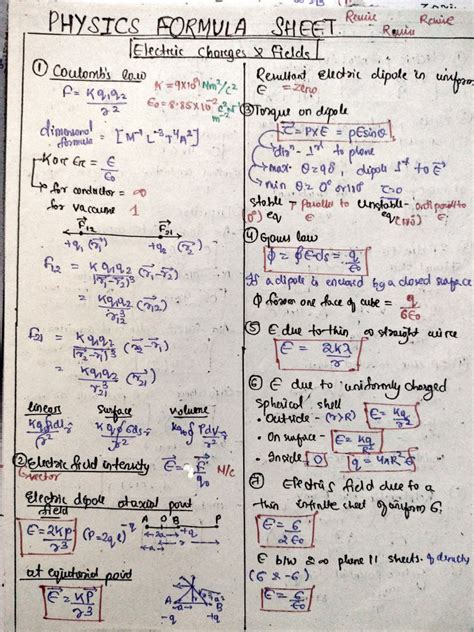 PHYSICS FORMULA SHEET
Revise Revise
Revise
Electric Charges & Fields
① Coulomb's law
F = Kq1q2 / r²
K = 9×10⁹ Nm²/c²
dimensional formula = [M⁻¹ L⁻³ T⁴ A²]
K or Er = ε/ε0
for conductor = ∞
for vaccume 1
F12 F21
+q1 (r1) +q2 (r2)
F12 = Kq1q2 / |r1-r2|³ (r1-r2)
= Kq1q2 / r12³ (r12)
F21 = Kq1q2 / |r2-r1|³ (r2-r1)
= Kq1q2 / r21³ (r21)
linear surface volume
② Electric field intensity E = F/q0 N/C
vector
Electric dipole at axial point
field
E = 2KP / r³ (P=2qe)
-q A O B +q P
at equitorial point
E = KP / r³
A B
Resultant electric dipole in uniform
E = zero
③ Torque on dipole
τ = P×E = PE sinθ
dirⁿ - ⊥r to plane
max. θ = 90°, dipole ⊥r to E
min θ = 0° or 180° τ=0
stable → Parallel to E
(0°) eq
unstable
eq (180°)
④ Gauss law
ϕ = ∮E·ds = q/ε0
If a dipole is enclosed by a closed surface
ϕ from one face of cube = q/6ε0
⑤ E due to thin ∞ straight wire
E = 2Kλ / r
⑥ E due to uniformly charged
spherical shell
• Outside - (r>R) E = Kq/r²
• On surface - E = Kq/R²
• Inside 0 q = 4πR²σ
⑦ Electric field due to a
thin infinite sheet of uniform σ
E = σ/2ε0
E b/w 2 ∞ plane || sheets of density
(σ & -σ)
E = σ/ε0